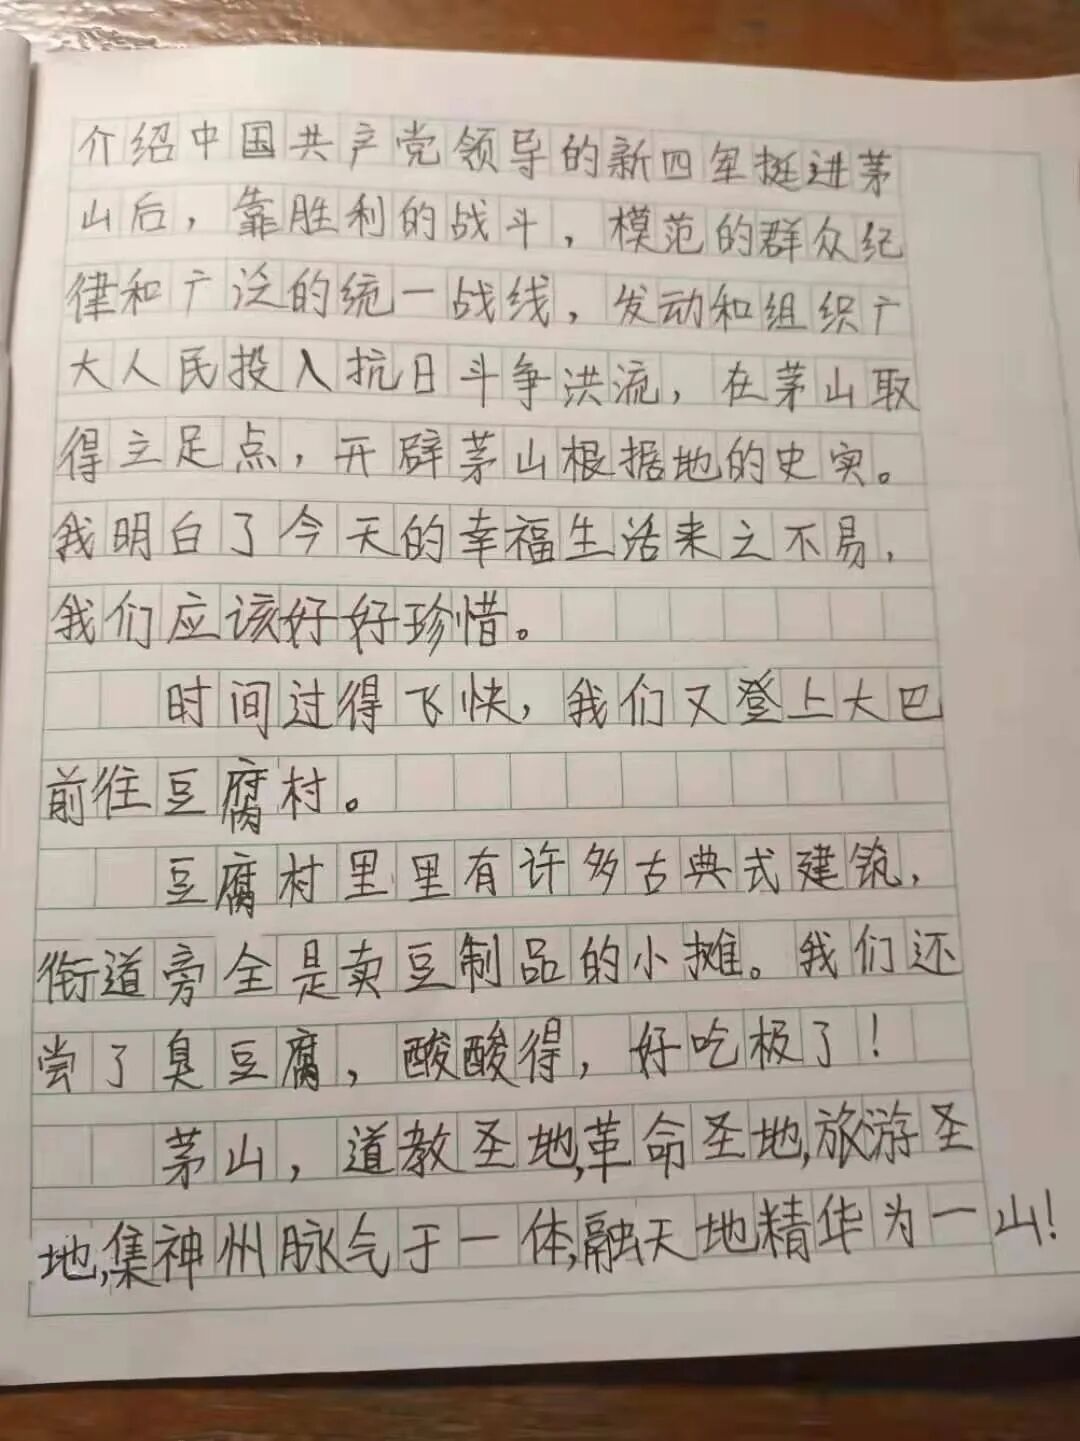 介绍中国共产党领导的新四军挺进茅
山后，靠胜利的战斗，模范的群众纪
律和广泛的统一战线，发动和组织广
大人民投入抗日斗争洪流，在茅山取
得立足点，开辟茅山根据地的史实。
我明白了今天的幸福生活来之不易，
我们应该好好珍惜。
时间过得飞快，我们又登上大巴
前往豆腐村。
豆腐村里里有许多古典式建筑，
街道旁全是卖豆制品的小摊。我们还
尝了臭豆腐，酸酸得，好吃极了！
茅山，道教圣地，革命圣地，旅游圣
地，集神州脉气于一体，融天地精华为一山！